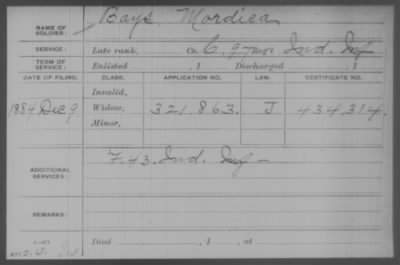 NAME OF SOLDIER: Bays, Mordica
SERVICE: Late rank, Co. C, 97 Reg't Ind. Inf
TERM OF SERVICE: Enlisted , 1 Discharged , 1
DATE OF FILING. CLASS. APPLICATION NO. LAW. CERTIFICATE NO.
Invalid,
1884 Dec 9 Widow, 321.863. J 434314.
Minor,
ADDITIONAL SERVICES: F. 43. Ind. Inf —
REMARKS:
Died , 1 , at